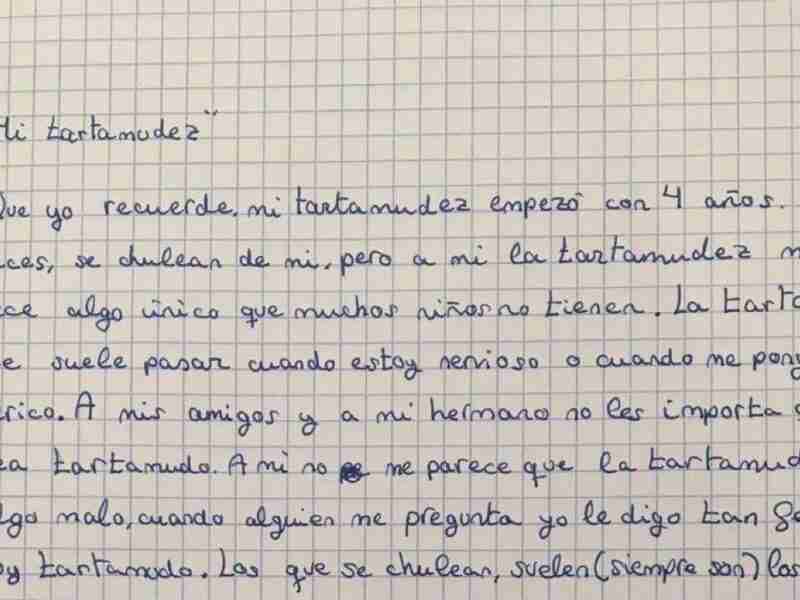 Mi tartamudez"
Que yo recuerde, mi tartamudez empezó con 4 años.
ces, se chulean de mi, pero a mi la tartamudez m
ce algo único que muchos niños no tienen. La tarta
e suele pasar cuando estoy nervioso o cuando me pong
rico. A mis amigos y a mi hermano no les importa
ea tartamudo. A mi no me parece que la tartamud
lgo malo, cuando alguien me pregunta yo le digo tan
oy tartamudo. Los que se chulean, suelen (siempre son) los